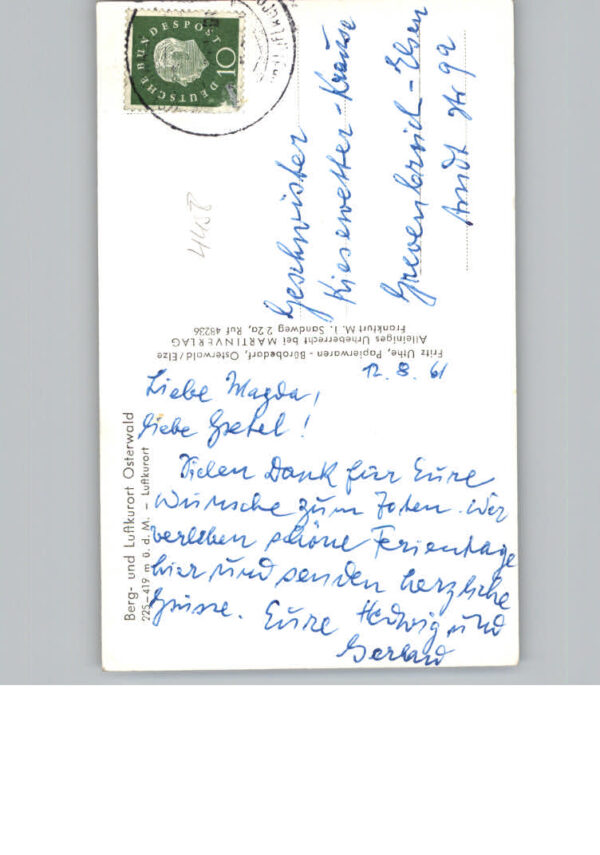 DEUTSCHE BUNDESPOST
10
4458
Geschwister
Kiesewetter-Krause
Grevenbroich-Elsen
Arndt Str 9a
Fritz Uthe, Papierwaren - Bürobedarf, Osterwald/Elze
Alleiniges Urheberrecht bei MARTINVERLAG
Frankfurt M. 1. Sandweg 2 2a, Ruf 48236
Berg- und Luftkurort Osterwald
225-419 m ü. d. M. - Luftkurort
12.8.61
Liebe Magda,
liebe Gretel!
Vielen Dank für Eure
Wünsche zum 70ten. Wir
verleben schöne Ferientage
hier und senden herzliche
Grüsse. Eure Hedwig und
Gerhard